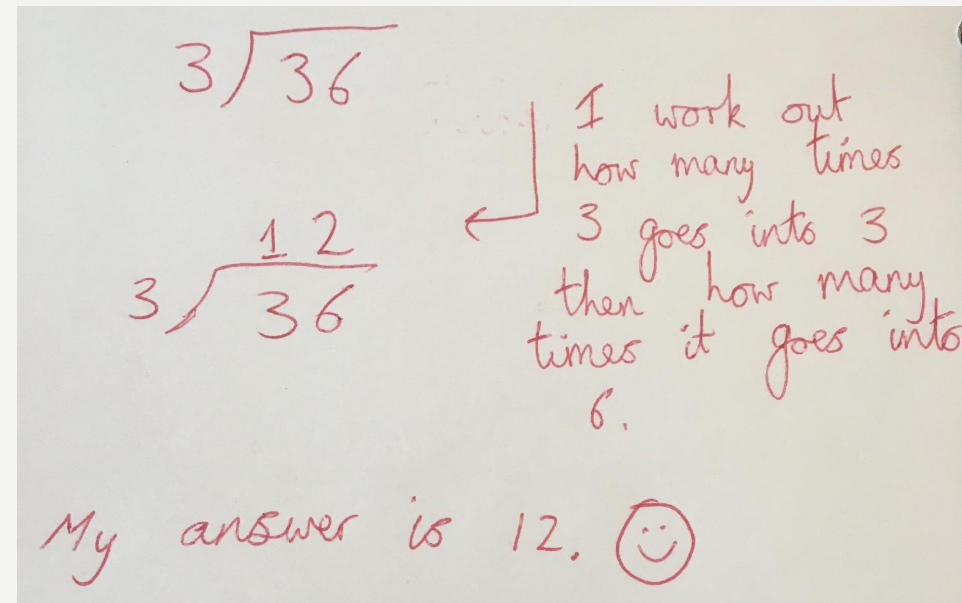 3)36
I work out
how many times
3 goes into 3
then how many
times it goes into
6.
12
3)36
My answer is 12.